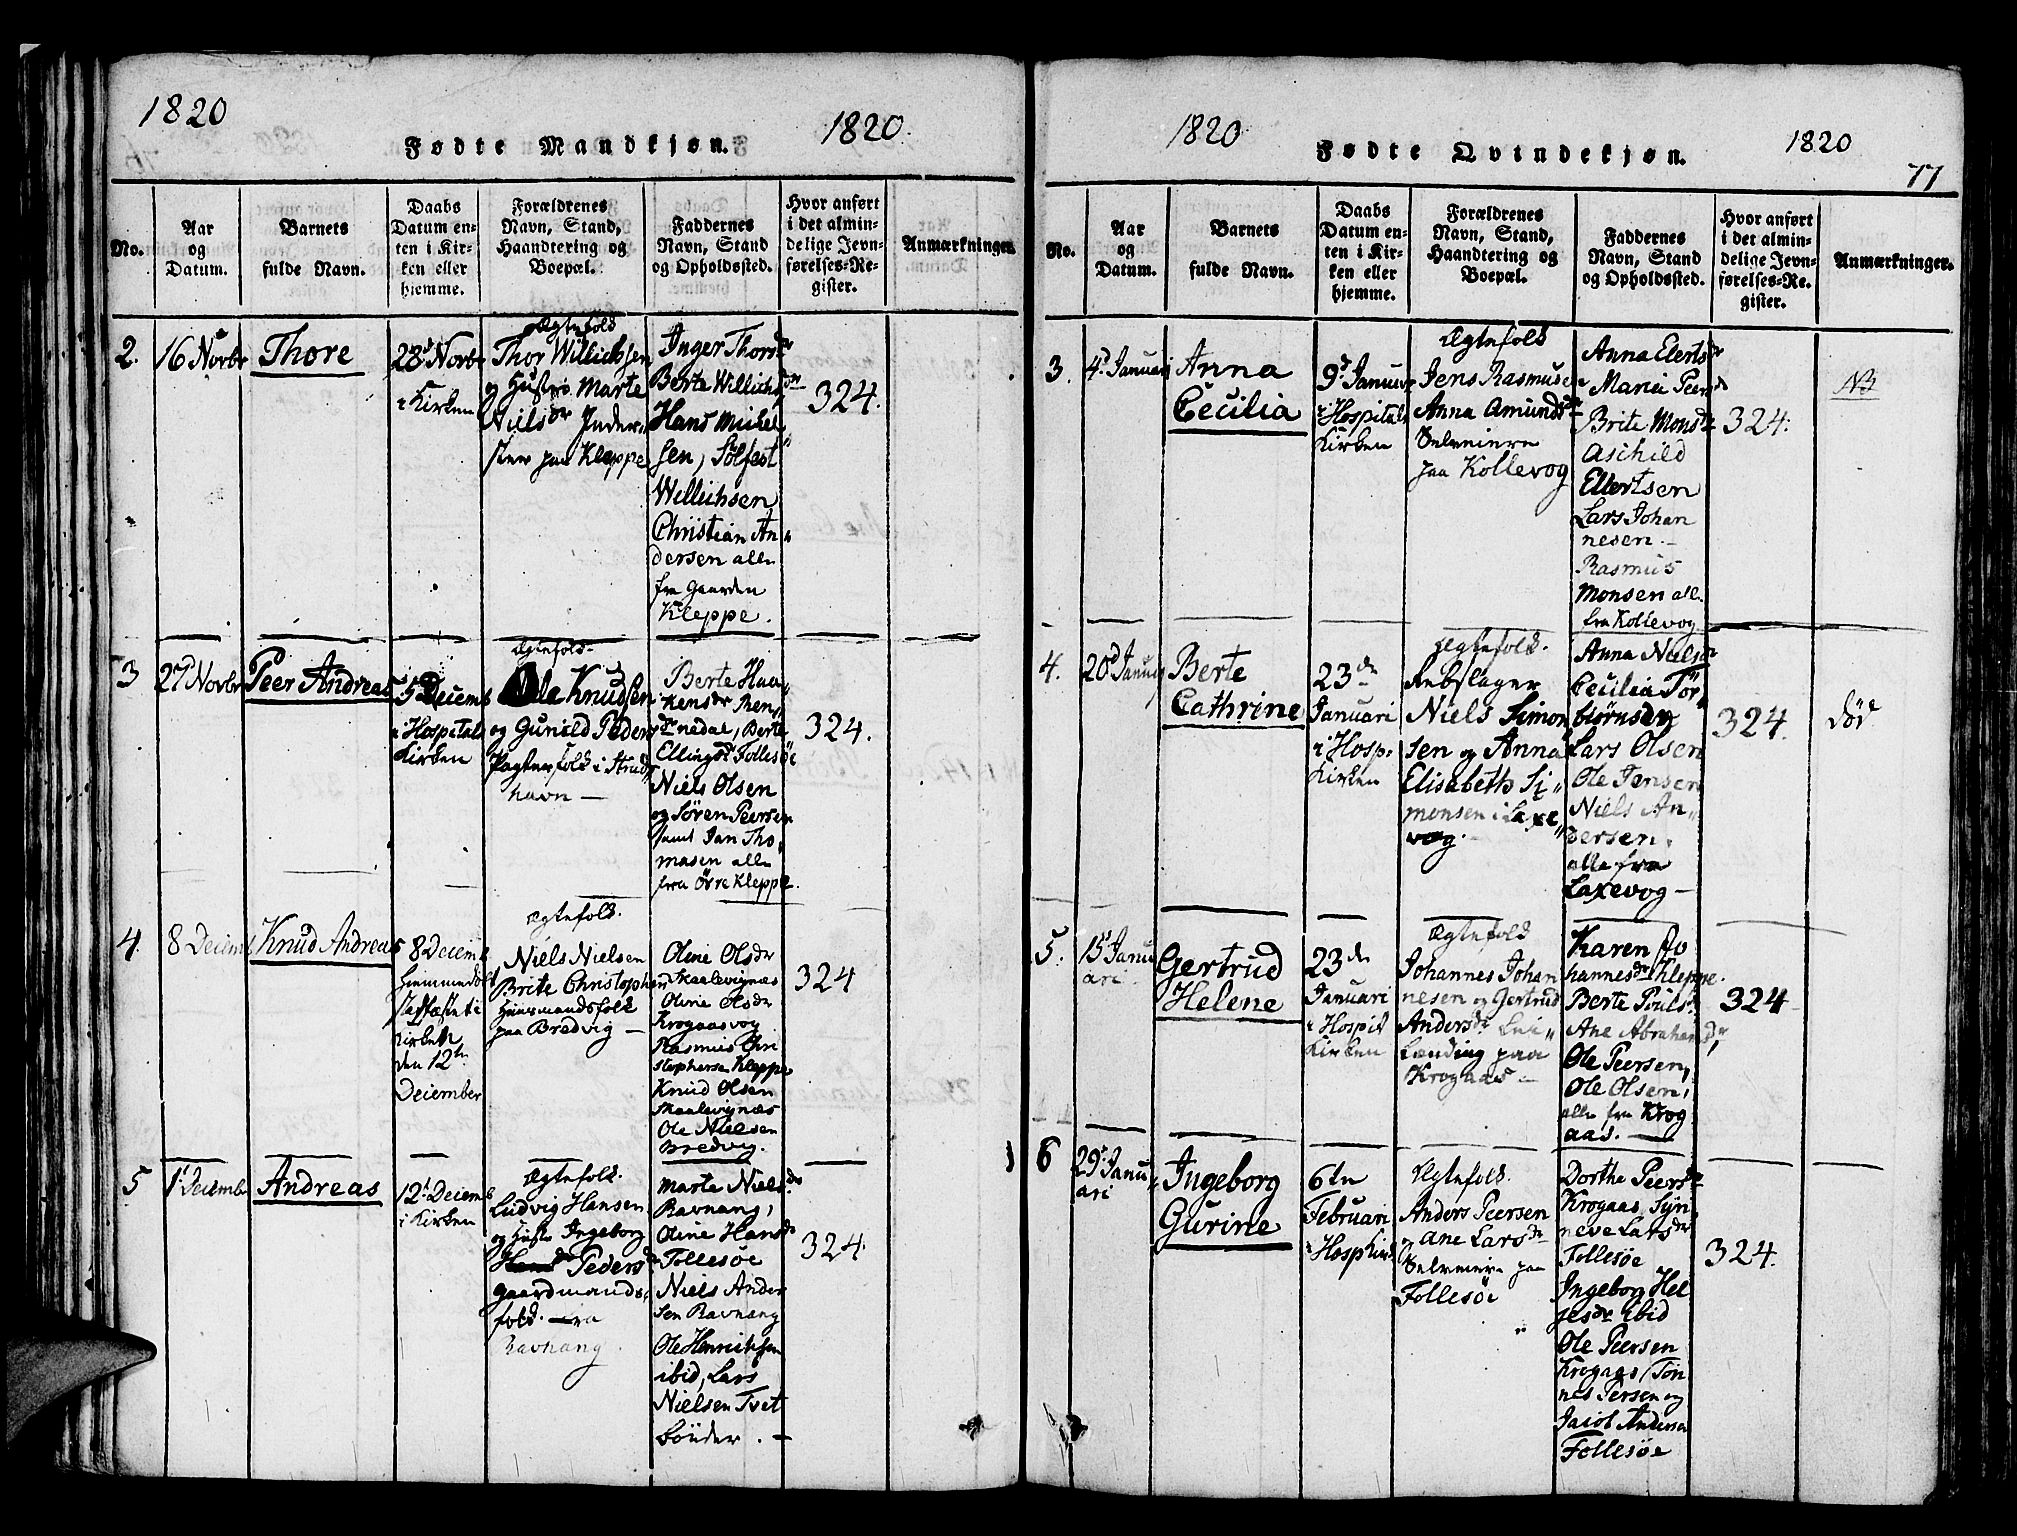 1820
Fødte Mandkjøn.
1820.
No.
Aar
og
Datum.
Barnets
fulde Navn.
Daabs
Datum en-
ten i Kir-
ken eller
hjemme.
Forældrenes
Navn, Stand,
Haandtering og
Boepæl.
Faddernes
Navn, Stand
og Opholdssted.
Hvor anført
i det almin-
delige Jevn-
førelses-Re-
gister.
Anmærkninger.
2.
16 Novbr
Thore
28d Novbr
i Kirken
Ægtefold
Thor Willichsen
og Hustro Marte
Nielsdr Inder„
ster paa Kleppe
Inger Thorsdr
Berte Willichsdr
Hans Mickel„
sen, Solfest
Willichsen
Christian An„
dersen alle
fra Gaarden
Kleppe.
324.
3
27 Novbr
Peer Andreas
5 Deiemb
i Hospitals
Kirken
Ægtefold.
Ole Knudsen
og Gunild Peders
Pagterfolk i Strud„
havn —
Berte Haa„
kensdr Ren„
nedal, Berte
Ellingsdr Follesöe
Niels Olsen
og Sören Peersen
samt Jan Tho„
masen alle
fra Øvre Kleppe.
324.
4.
8 Deiemb
Knud Andreas
8 Deiemb
Hiemmedöbt
Stadfæstet i
Kirken
den 12te
Deiember
Ægtefold.
Niels Nielsen
Brite Christophersd
Huusmandsfolk
paa Bredvig —
Oline Olsdr
Skaalevignæs
Oline Olsdr
Krogaasvog
Rasmus Chri
stophersen Kleppe
Knud Olsen
Skaalevignæs
Ole Nielsen
Bredvig.
324
5
1t Deiembr
Andreas
12t Deiemb
i Kirken
Ægtefold.
Ludvig Hansen
og Hustr Ingeborg
Pedersdr
Gaardmands„
folk. fra
Ravnang.
Marte Nielsdr
Ravnang,
Oline Hansdr
Follesöe
Niels Ander
sen Ravnang
Ole Henrichsen
ibid, Lars
Nielsen Tvet
Bönder. —
324.
1820
Fødte Qvindekjøn.
1820
77
No.
Aar
og
Datum.
Barnets
fulde Navn.
Daabs
Datum en-
ten i Kir-
ken eller
hjemme.
Forældrenes
Navn, Stand,
Haandtering og
Boepæl.
Faddernes
Navn, Stand
og Opholdssted.
Hvor anført
i det almin-
delige Jevn-
førelses-Re-
gister.
Anmærkninger.
3.
4d Januari
Anna
Cecilia
9d Januar
i Hospitals
Kirken
Ægtefold
Jens Rasmusen
Anna Amundsdr
Selveiere
paa Kollevog
Anna Elertsdr
Maria Peersd
Brite Monsdr
Aschild
Ellertsen
Lars Johan
nesen. —
Rasmus
Monsen alle
fra Kollevog
324.
NB
4.
20d Januari
Berte
Cathrine
23de
Januari
i Hosp:
Kirken
Ægtefold.
Rebslager
Niels Simon
sen og Anna
Elisabeth Si„
monsen i Laxe„
vog. —
Anna Nielsdr
Cecilia Tor„
biörnsen
Lars Olsen
Ole Jensen
Niels An„
dersen.
alle fra
Laxevog —
324.
Död
5.
15d Janu
ari.
Gertrud
Helene
23de
Januari
i Hospit
Kirken
Ægtefold
Johannes Johan
nesen og Gertrud
Andersdr Lei„
lænding paa
Krogaas —
Karen Jo
hannesdr Kleppe.
Berte Poulsd:
Ane Abrahamsdr,
Ole Peersen,
Ole Olsen,
alle fra Krog
aas. —
324
6
29d Janu„
ari
Ingeborg
Gurine
6te
Februari
i Hosp Kirk
Ægtefold.
Anders Peersen
og Ane Larsdr
Selveiere paa
Follesöe
Dorthe Peersdr
Krogaas, Syn
neve Larsdr
Follesöe
Ingeborg Hel
jesdr ibid
Ole Peersen
Krogaas, Tön
nes Persen og
Jacob Andersen
Follesöe
324.